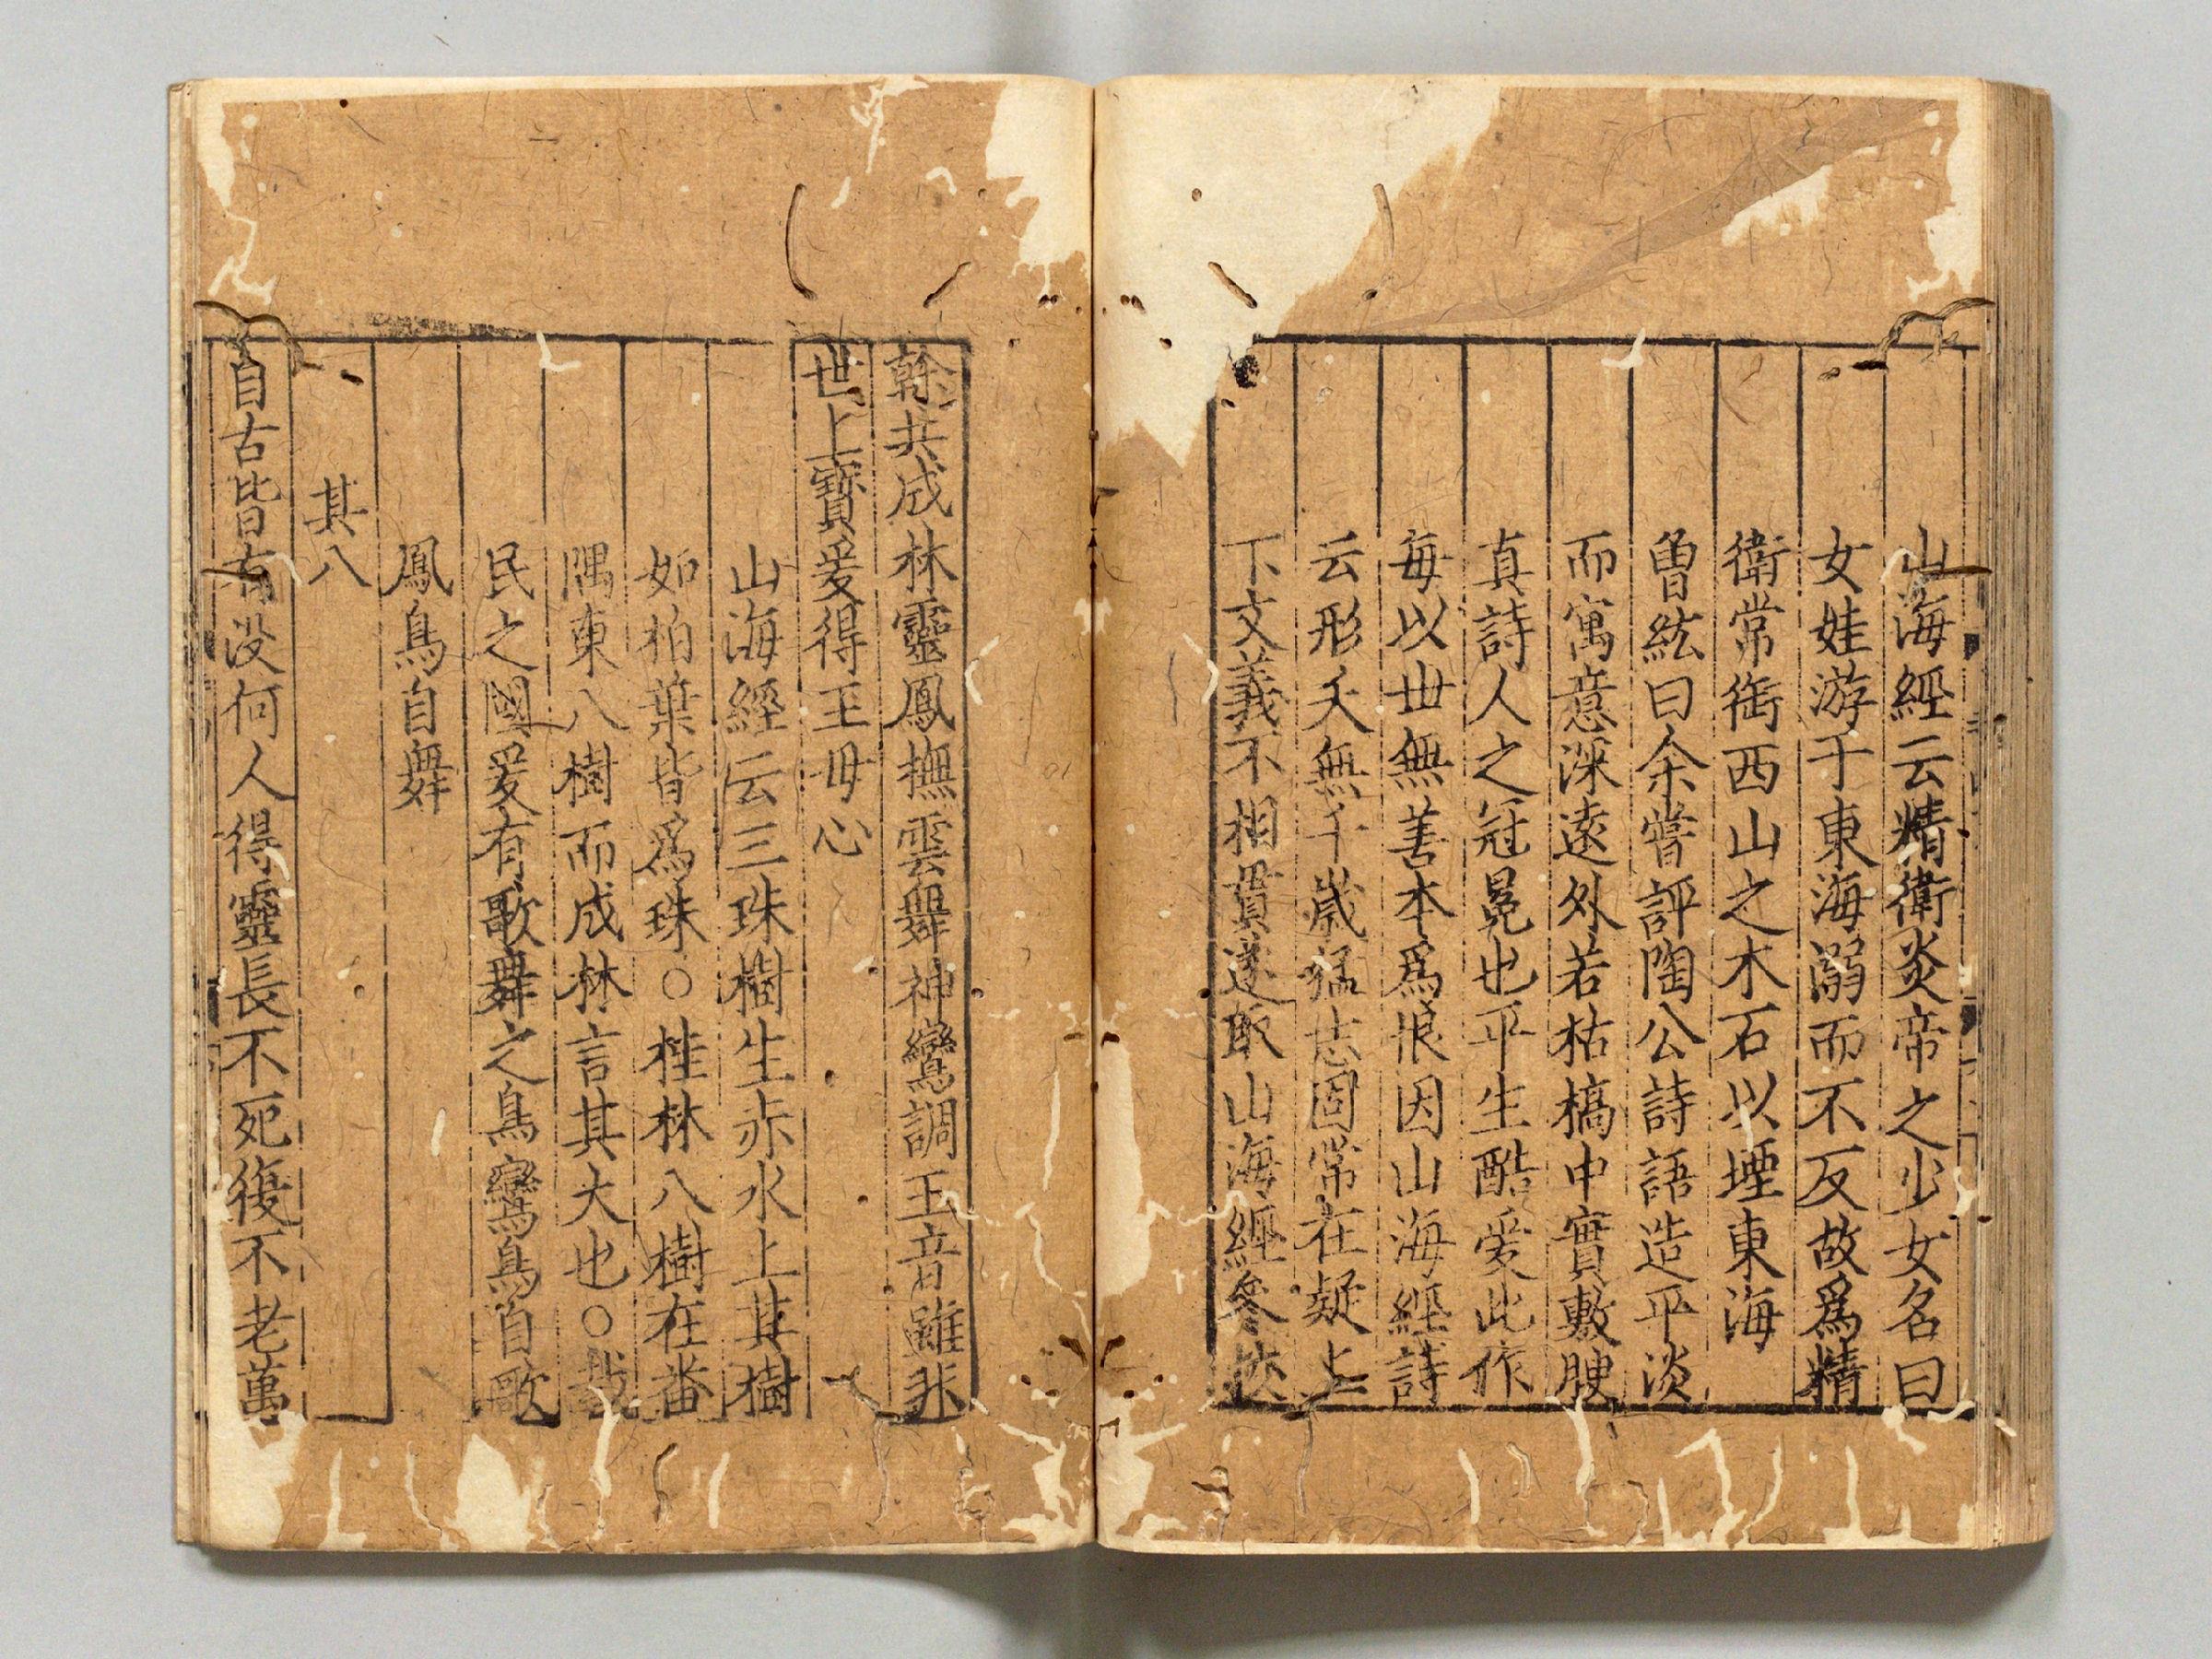 山海經云精衛炎帝之少女名曰
女娃游于東海溺而不反故爲精
衛常銜西山之木石以堙東海
曾紘曰余嘗評陶公詩語造平淡
而寓意深遠外若枯槁中實敷腴
真詩人之冠冕也平生酷爱此作
每以世無善本爲恨因山海經詩
云形夭無千歲猛志固常在疑上
下文義不相貫遂取山海經參校
幹共成林靈鳳撫雲舞神鸞調玉音雖非
世上寶爰得王母心
山海經云三珠樹生赤水上其樹
如柏葉皆爲珠○桂林八樹在番
隅東八樹而成林言其大也○
民之國爰有歌舞之鳥鸞鳥自歌
鳳鳥自舞
其八
自古皆有没何人得靈長不死復不老萬